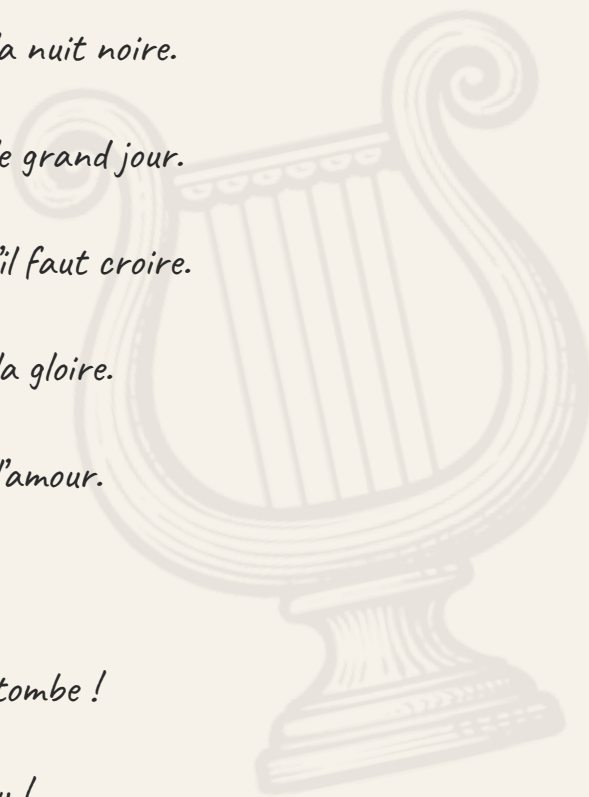 la nuit noire.
grand jour.
'il faut croire.
la gloire.
l'amour.
tombe !
!